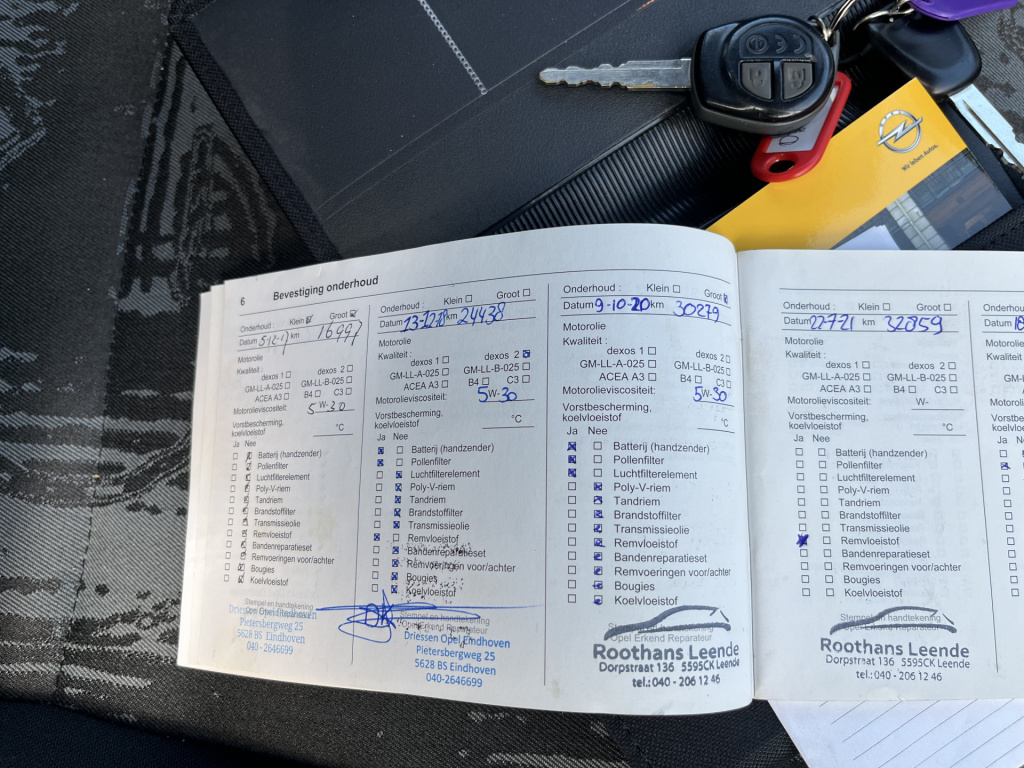 OPEL
Wir leben Autos.
6 Bevestiging onderhoud
Onderhoud : Klein Groot
Datum 5-12-17 km 16997
Motorolie
Kwaliteit :
dexos 1 dexos 2
GM-LL-A-025 GM-LL-B-025
ACEA A3 B4 C3
Motorolieviscositeit: 5 W-30
Vorstbescherming,
koelvloeistof °C
Ja Nee
Batterij (handzender)
Pollenfilter
Luchtfilterelement
Poly-V-riem
Tandriem
Brandstoffilter
Transmissieolie
Remvloeistof
Bandenreparatieset
Remvoeringen voor/achter
Bougies
Koelvloeistof
Stempel en handtekening
Driessen Opel Eindhoven
Pietersbergweg 25
5628 BS Eindhoven
040-2646699
Onderhoud : Klein Groot
Datum 13-12-18 km 24438
Motorolie
Kwaliteit :
dexos 1 dexos 2
GM-LL-A-025 GM-LL-B-025
ACEA A3 B4 C3
Motorolieviscositeit: 5W-30
Vorstbescherming,
koelvloeistof °C
Ja Nee
Batterij (handzender)
Pollenfilter
Luchtfilterelement
Poly-V-riem
Tandriem
Brandstoffilter
Transmissieolie
Remvloeistof
Bandenreparatieset
Remvoeringen voor/achter
Bougies
Koelvloeistof
Stempel en handtekening
Opel Erkend Reparateur
Driessen Opel Eindhoven
Pietersbergweg 25
5628 BS Eindhoven
040-2646699
Onderhoud : Klein Groot
Datum 9-10-20 km 30279
Motorolie
Kwaliteit :
dexos 1 dexos 2
GM-LL-A-025 GM-LL-B-025
ACEA A3 B4 C3
Motorolieviscositeit: 5W-30
Vorstbescherming,
koelvloeistof °C
Ja Nee
Batterij (handzender)
Pollenfilter
Luchtfilterelement
Poly-V-riem
Tandriem
Brandstoffilter
Transmissieolie
Remvloeistof
Bandenreparatieset
Remvoeringen voor/achter
Bougies
Koelvloeistof
Stempel en handtekening
Opel Erkend Reparateur
Roothans Leende
Dorpstraat 136 5595CK Leende
tel.: 040 - 206 12 46
Onderhoud : Klein Groot
Datum 22-7-21 km 32859
Motorolie
Kwaliteit :
dexos 1 dexos 2
GM-LL-A-025 GM-LL-B-025
ACEA A3 B4 C3
Motorolieviscositeit: W-
Vorstbescherming,
koelvloeistof °C
Ja Nee
Batterij (handzender)
Pollenfilter
Luchtfilterelement
Poly-V-riem
Tandriem
Brandstoffilter
Transmissieolie
Remvloeistof
Bandenreparatieset
Remvoeringen voor/achter
Bougies
Koelvloeistof
Stempel en handtekening
Opel Erkend Reparateur
Roothans Leende
Dorpstraat 136 5595CK Leende
tel.: 040 - 206 12 46